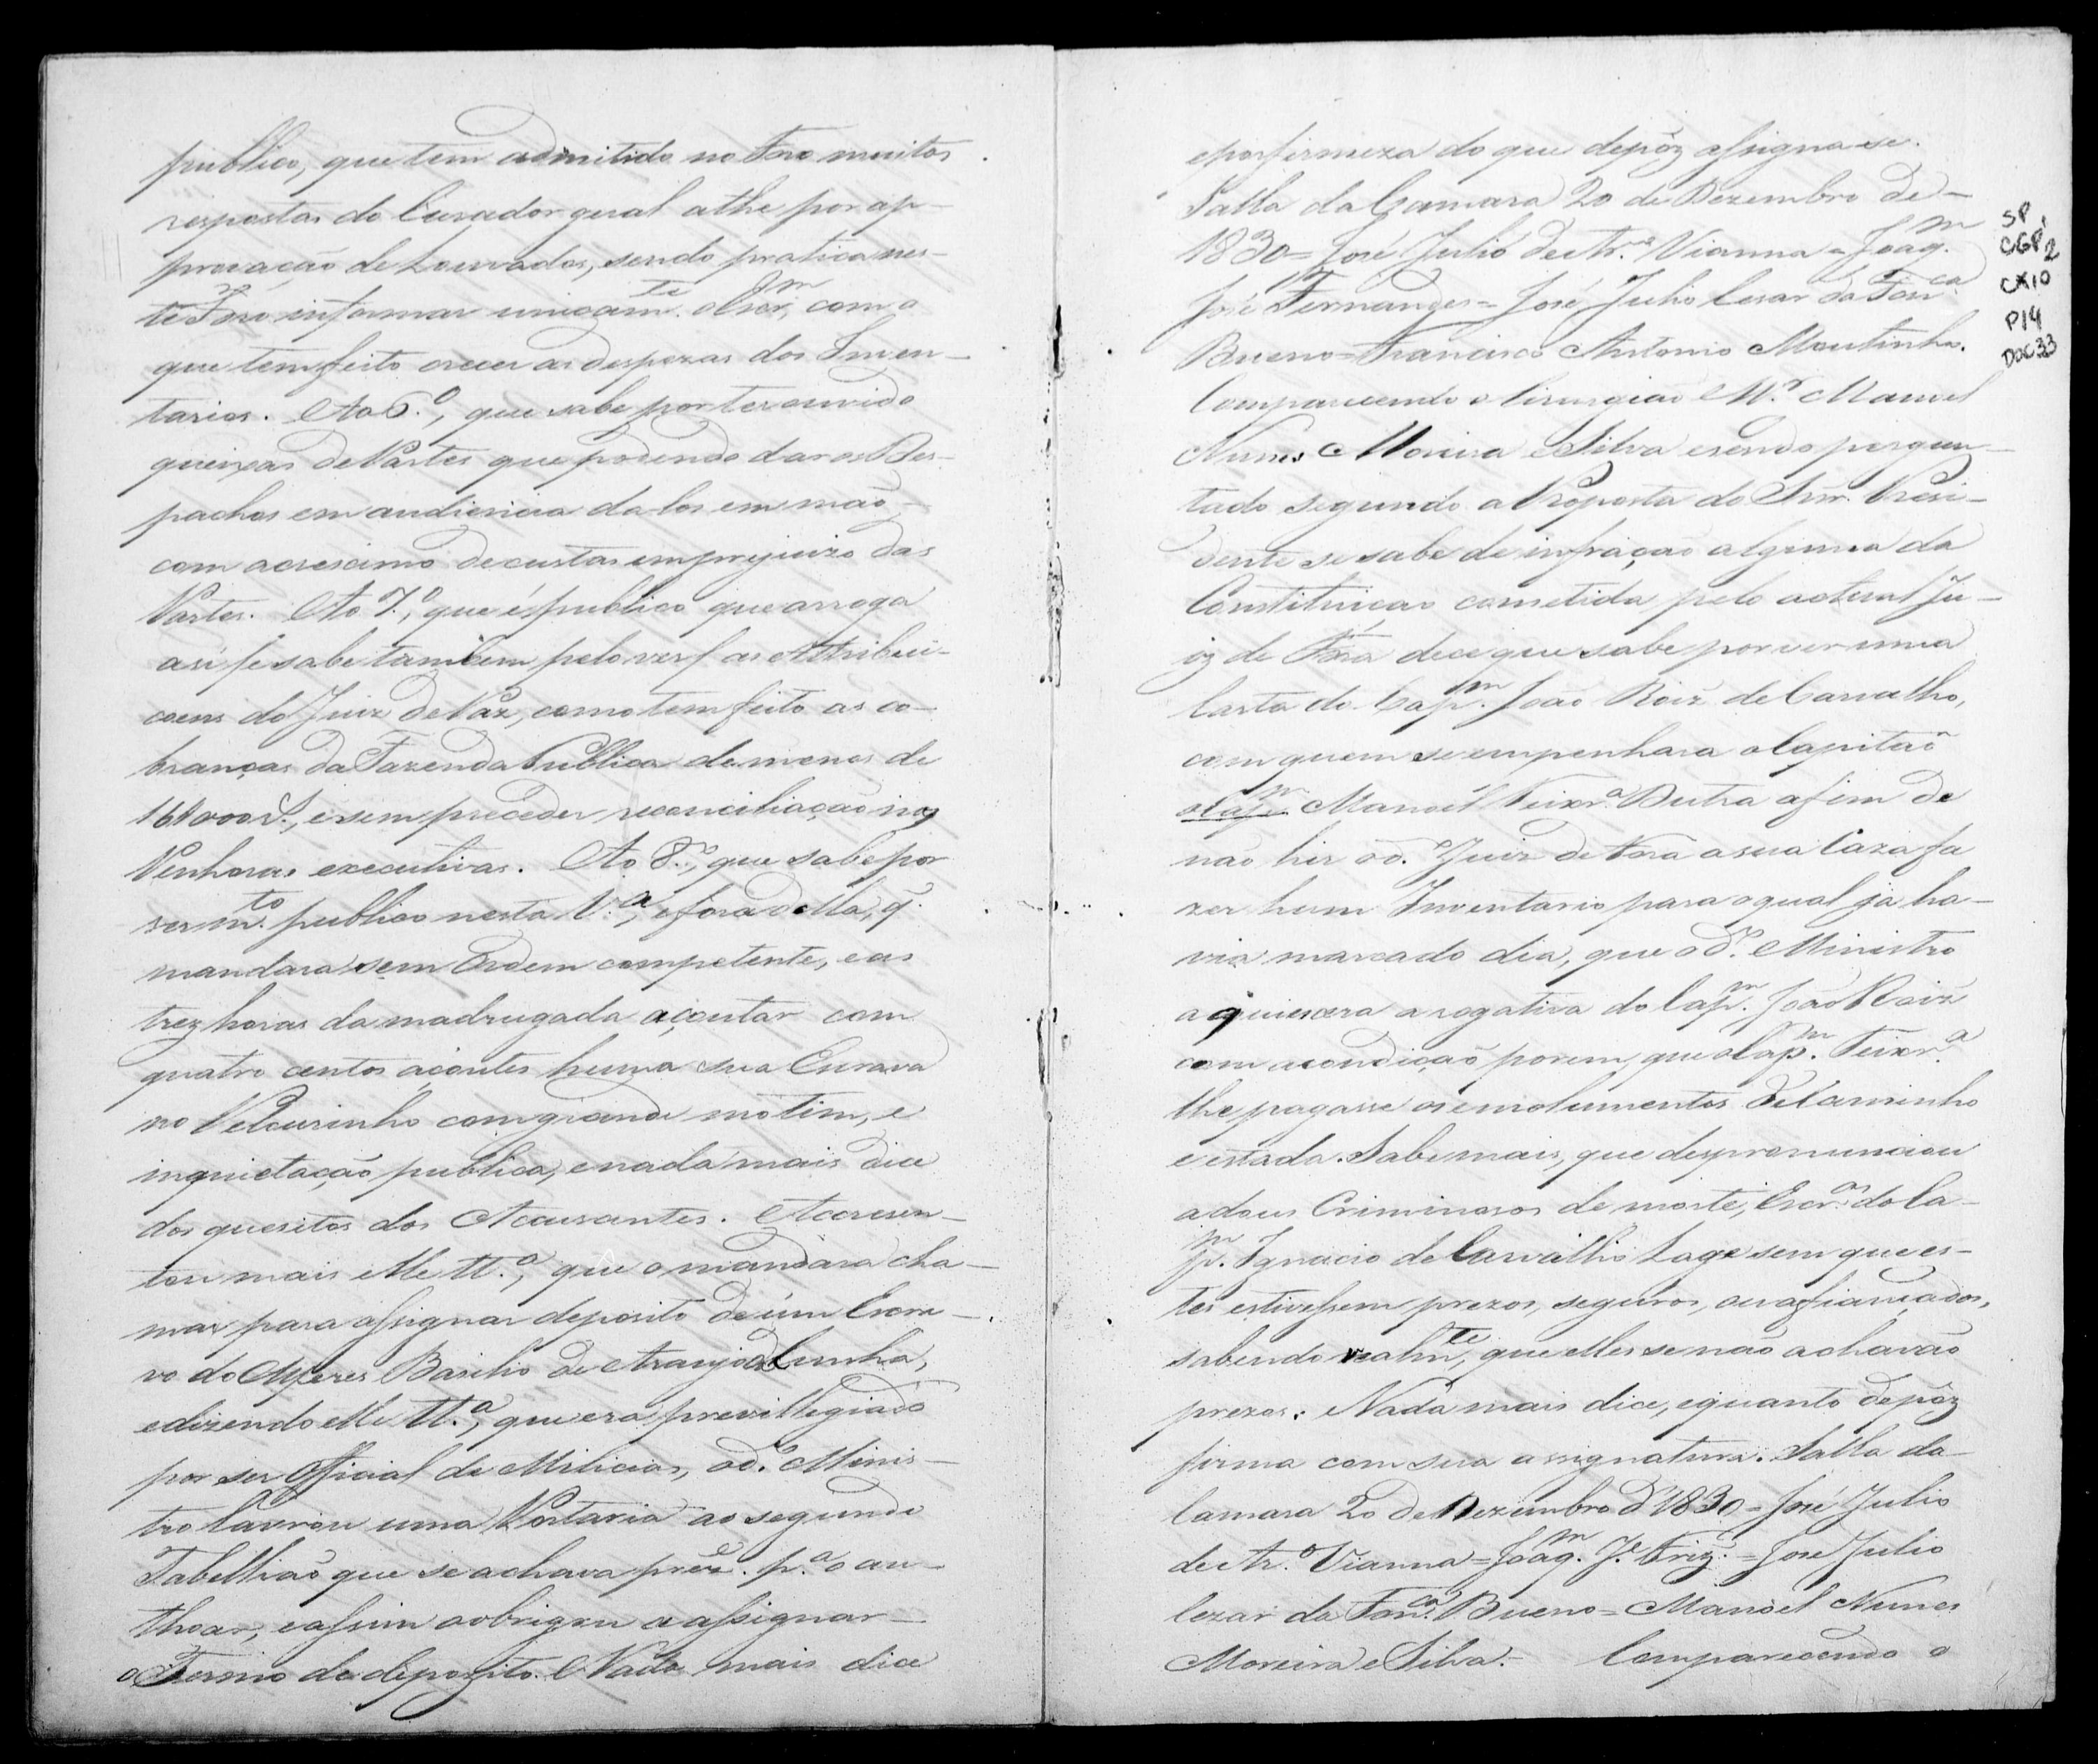 publico, que tem admitido no Foro muitos
respostas do Curador geral athe por ap-
provação de Louvados, sendo pratica nes-
te Foro informar unicam.te o Escr.m, com o
que tem feito crecer as despezas dos Inven-
tarios. Ao 6.º, que sabe por ter ouvido
queixas de Partes que podendo dar os Des-
pachos em audiencia da-los em mão
com acrescimo de custas em prejuizo das
Partes. Ao 7.º, que é publico que arroga
a si (e sabe tambem pelo ver) as Attribui-
coens do Juiz de Paz, como tem feito as co-
branças da Fazenda Publica de menos de
16$000 r.s, e sem preceder reconciliação nas
Penhoras executivas. Ao 8.º, que sabe por
ser m.to publico nesta V.a, e fora della, q.
mandara sem Ordem competente, e as
trez horas da madrugada açoutar com
quatro centos açoutes huma sua Escrava
no Pelourinho com grande motim, e
inquietação publica, e nada mais dice
dos quesitos dos Accusantes. Accresen-
tou mais elle tt.a, que o mandara cha-
mar para assignar deposito de úm Escra-
vo do Alferes Basilio de Araujo Cunha,
e dizendo elle tt.a, que era previllegiado
por ser Official de Milicias, o d.o Minis-
tro lavrou uma Portaria ao segundo
Tabellião que se achava prez.e p.a o au-
thoar, e assim o obrigou a assignar
o Termo de depozito. Nada mais dice
e por firmeza do que depôz assigna-se.
Salla da Camara 20 de Dezembro de
1830 = José Julio de Ar.o Vianna = Joaq.m
José Fernandes = José Julio Cesar da Fon.ca
Bueno = Francisco Antonio Moutinho.
Comparecendo o Cirurgião M.r Manoel
Nunes Moreira e Silva e sendo pergun-
tado segundo a Proposta do Snr. Presi-
dente se sabe de infração alguma da
Constituição cometida pelo actual Ju-
iz de Fora dece que sabe por ver uma
Carta do Cap.m João Roiz de Carvalho,
com quem se empenhara o Capitão
o Cap.m Manoel Teixr.a Dutra afim de
não hir o d.o Juiz de Fora a sua Caza fa
zer hum Inventario para o qual já ha-
via marcado dia, que o d.o Ministro
aquiescera a rogativa do Cap.m João Roiz
com a condição porem, que o Cap.m Teixr.a
lhe pagasse os emolumentos de Caminho
e estada. Sabe mais, que despronunciou
a dous Criminosos de morte, Escr.os do Ca-
p.m Ignacio de Carvalho Lage sem que es-
tes estivessem prezos, seguros, ou afiançados,
sabendo realm.te, que elles se não achavão
prezos. Nada mais dice, e quanto depôz
firma com sua assignatura. Salla da
Camara 20 de Dezembro d'1830 = José Julio
de Ar.o Vianna = Joaq.m J.e Friz. = José Julio
Cezar da Fon.ca Bueno = Manoel Nunes
Moreira e Silva. = Comparecendo o
SP
CGP1
2
CX10
P14
DOC33